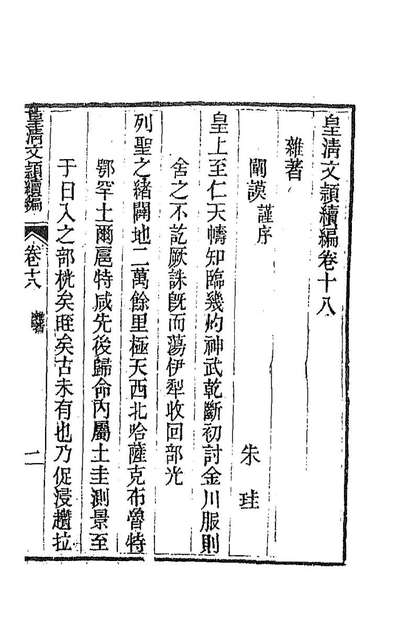 皇清文頴續編卷十八
雜著
闢謨謹序
朱珪
皇上至仁天幬知臨幾灼神武乾斷初討金川服則
舍之不訖厥誅旣而蕩伊犁收回部光
列聖之緒開地二萬餘里極天西北哈薩克布魯特
鄂罕土爾扈特咸先後歸命內屬土圭測景至
于日入之部桄矣旺矣古未有也乃促浸趲拉
皇淸文頴續編
卷十八
雜著
二